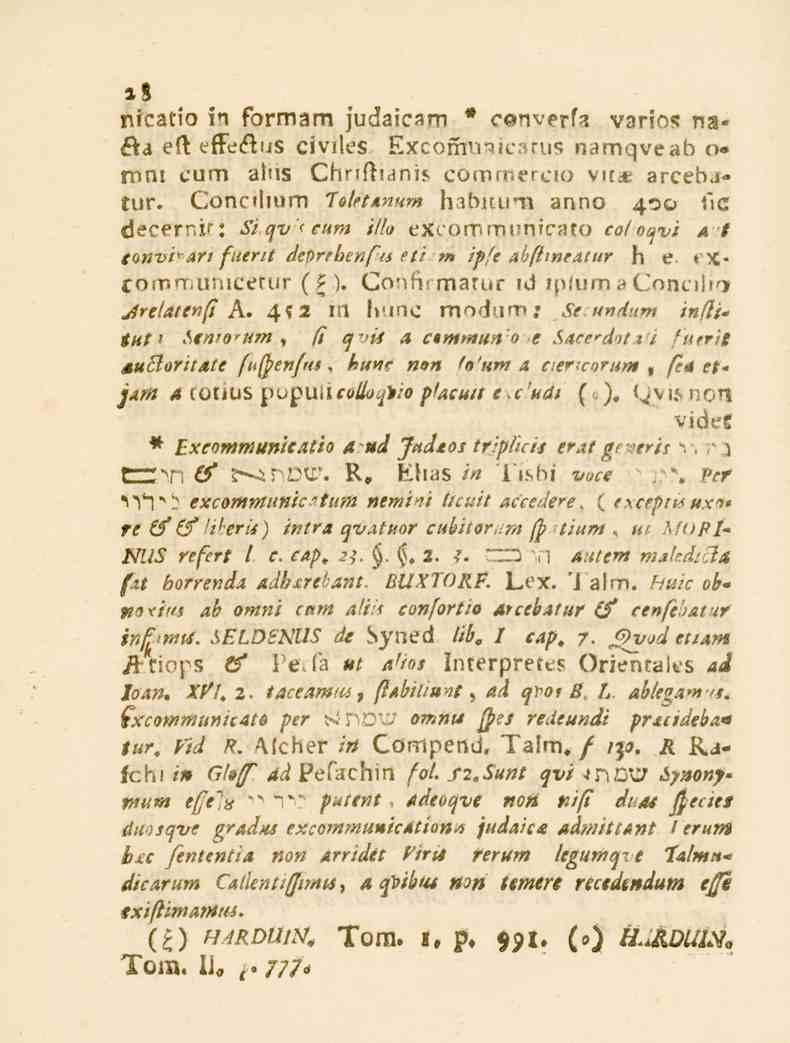 28
nicatio in formam judaicam * converſa varios na-
cta eſt effectus civiles. Excom̃unicatus namqve ab o-
mni cum aliis Chriſtianis commercio vitæ arceba-
tur. Concilium Toletanum habitum anno 400 ſic
decernit: Si qvis cum illo excommunicato colloqvi aut
convivari fuerit deprehenſus etiam ipſe abſtineatur h. e. ex-
communicetur (ξ). Confirmatur id ipſum a Concilio
Arelatenſi A. 452 in hunc modum: Secundum inſti-
tuta Seniorum, ſi qvis a communione Sacerdotali fuerit
auctoritate ſuſpenſus, hunc non ſolum a clericorum, ſed et-
jam a totius populi colloqvio placuit excludi (ο). Qvis non
videt
* Excommunicatio apud Judæos triplicis erat generis
& שמתא. R. Elias in Tisbi voce Per
excommunicatum nemini licuit accedere, (exceptis uxo-
re & & liberis) intra qvatuor cubitorum ſpatium, ut MORI-
NUS refert l. c. cap. 23. §. §. 2. 3. autem maledicta
ſat horrenda adhærebant. BUXTORF. Lex. Talm. Huic ob-
noxius ab omni cum aliis conſortio arcebatur & cenſebatur
infimus. SELDENUS de Syned lib. I cap. 7. Qvod etiam
Ætiops & Perſa ut alios Interpretes Orientales ad
Ioan. XVI. 2. taceamus, ſtabiliunt, ad qvos B. L. ablegamus.
Excommunicato per שמתא omnis ſpes redeundi præcideba-
tur. Vid R. Aſcher in Compend. Talm. f 130. R Ra-
ſchi in Gloſſ. ad Peſachin fol. 52. Sunt qvi שמתא Synony-
mum eſſe putent, adeoqve non niſi duas ſpecies
duosqve gradus excommunicationis judaicæ admittant Verum
hæc ſententia non arridet Viris rerum legumqve Talmu-
dicarum Callentiſſimis, a qvibus non temere recedendum eſſe
exiſtimamus.
(ξ) HARDUIN. Tom. I. p. 991. (ο) HARDUIN.
Tom. II. p. 777.